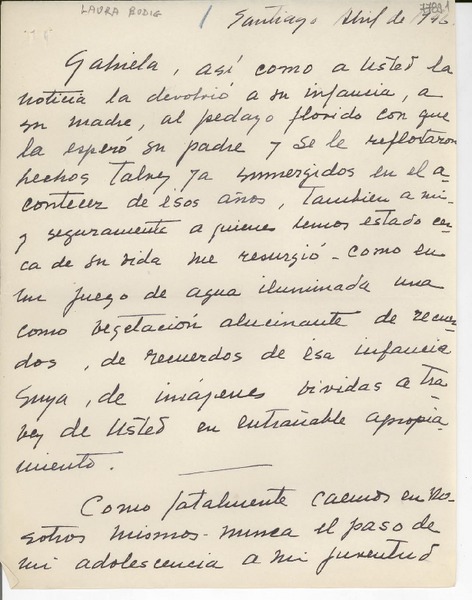 LAURA RODIG
Santiago Abril de 1946
Gabriela, así como a Usted la
noticia la devolvió a su infancia, a
su madre, al pedazo florido con que
la esperó su padre y se le reflotaron
hechos Talvez ya sumergidos en el a
contecer de esos años, tambien a mi-
y seguramente a quienes hemos estado cer-
ca de su vida me resurgió - como en
un juego de agua iluminada una
como vegetación alucinante de recuer-
dos, de recuerdos de esa infancia
suya, de imágenes vividas a tra-
vez de Usted en entrañable apropia-
miento.
Como fatalmente caemos en no-
sotros mismos - nunca el paso de
mi adolescencia a mi juventud